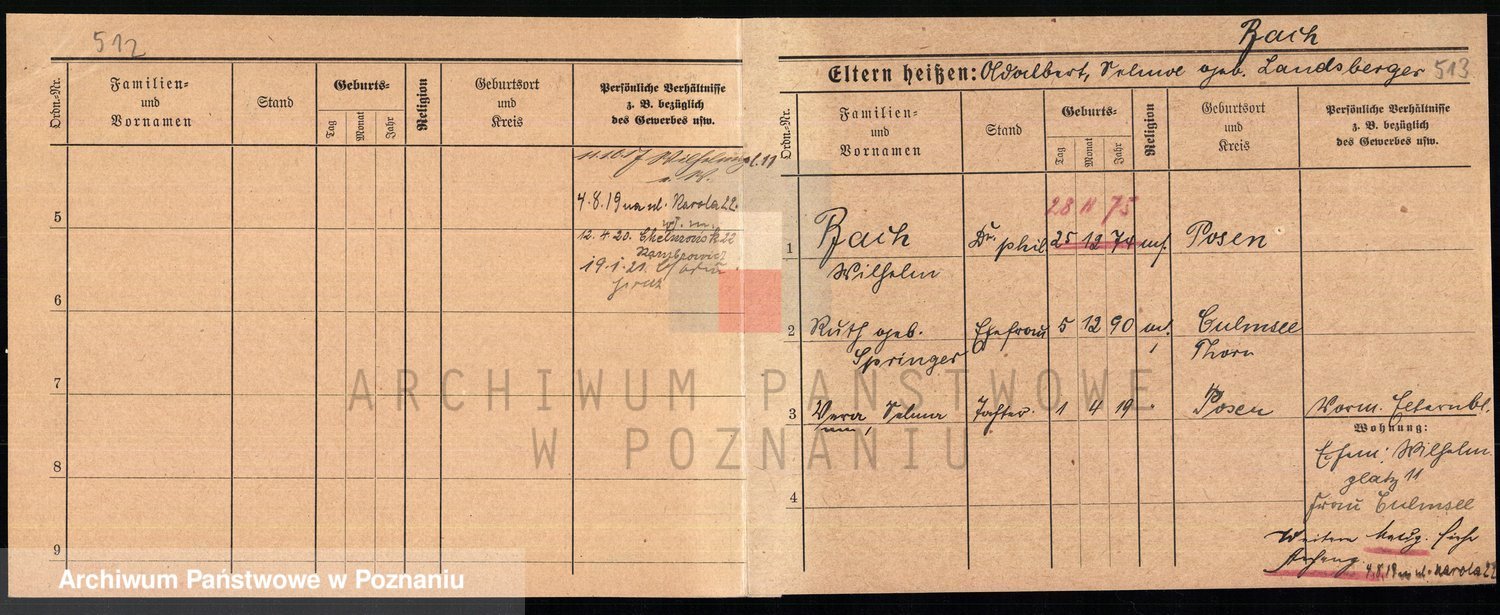 512
Ordn.-Nr.
Familien-
und
Vornamen
Stand
Geburts-
Tag
Monat
Jahr
Religion
Geburtsort
und
Kreis
Persönliche Verhältnisse
z. B. bezüglich
des Gewerbes usw.
Wilhelmspl. 11
5
4.8.19 na ul. Karola 22.
12.4.20. 22
6
19.1.21.
7
8
9
Zach
Eltern heißen: Adalbert, Selma geb. Landsberger
513
Ordn.-Nr.
Familien-
und
Vornamen
Stand
Geburts-
Tag
Monat
Jahr
Religion
Geburtsort
und
Kreis
Persönliche Verhältnisse
z. B. bezüglich
des Gewerbes usw.
28 11 75
1 Zach Dr. phil. 25 12 74 Posen
Wilhelm
2 Ruth geb. Ehefrau 5 12 90 Culmsee
Springer Thorn
3 Vera, Selma Tochter 1 4 19 Posen
Wohnung:
Ehem: Wilhelm
platz 11
4
Frau Culmsee
Weitere siehe
Anhang
4.8.19 na ul. Karola 22
ARCHIWUM PAŃSTWOWE
W POZNANIU
Archiwum Państwowe w Poznaniu